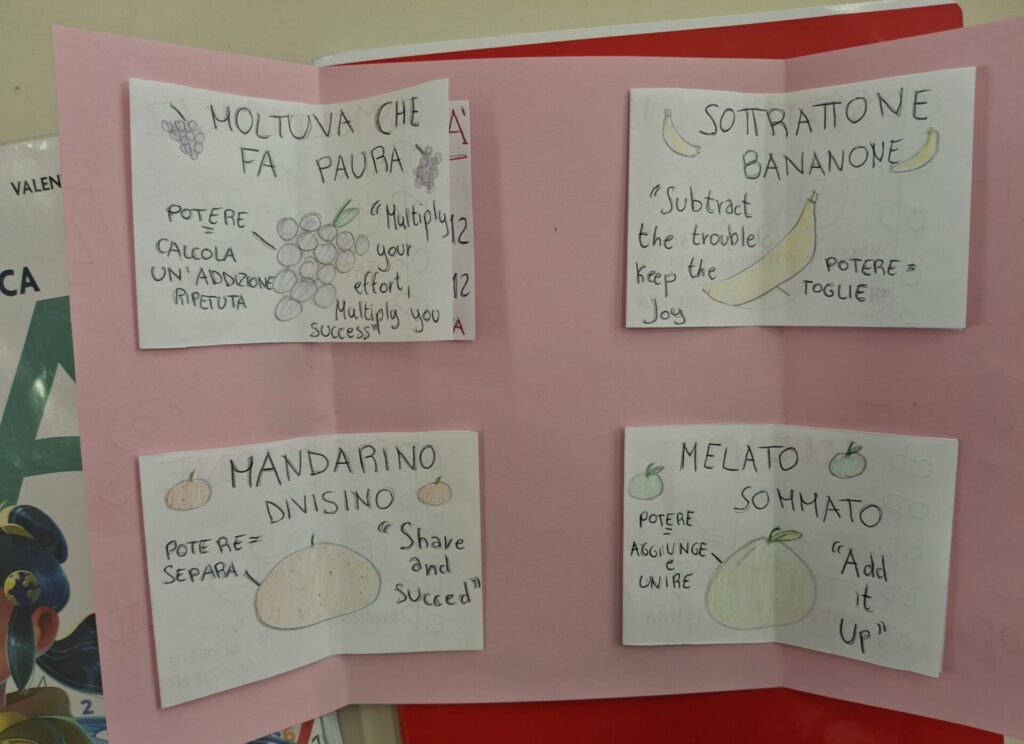 VALEN
CA
MOLTUVA CHE
FA PAURA
POTERE
=
CALCOLA
UN'ADDIZIONE
RIPETUTA
"Multiply
your
effort,
Multiply you
success"
A'
12
12
A
SOTTRATTONE
BANANONE
"Subtract
the trouble
keep the
Joy
POTERE =
TOGLIE
MANDARINO
DIVISINO
POTERE =
SEPARA
"Share
and
succed"
MELATO
SOMMATO
POTERE
=
AGGIUNGE
E
UNIRE
"Add
it
Up"
2